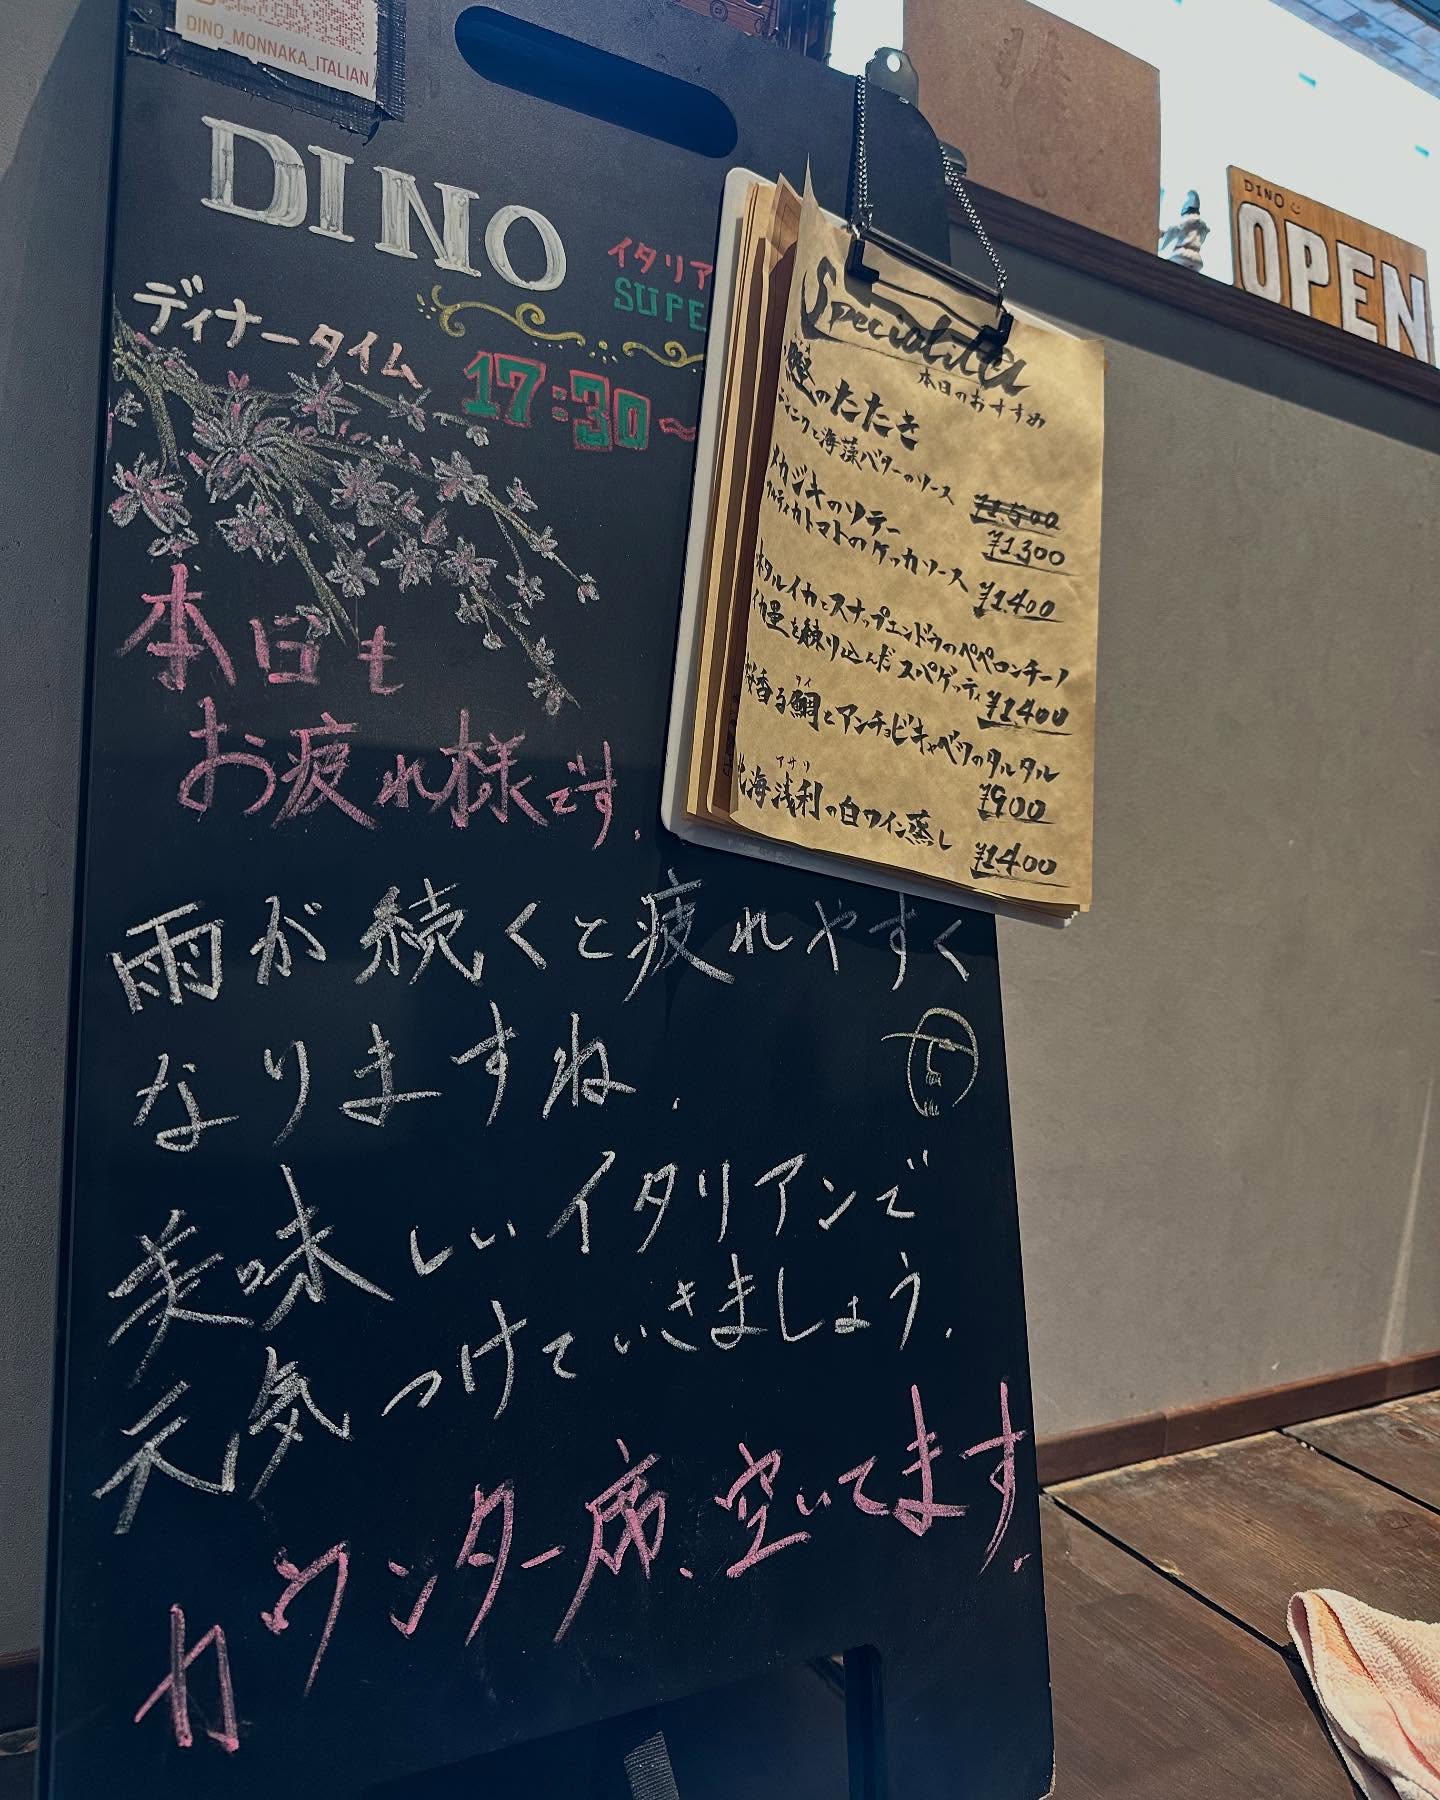 DINO_MONNAKA_ITALIAN
DINO
イタリア
SUPE
ディナータイム
17:30~
本日も
お疲れ様です.
雨が続くと疲れやすく
なりますね.
美味しいイタリアンで
元気つけていきましょう.
カウンター席、空いてます.
Specialità
本日のおすすめ
鰹のたたき
ニンニクと海藻バターのソース
¥1,500
¥1,300
メカジキのソテー
フルティカトマトのケッカソース ¥1,400
ホタルイカとスナップエンドウのペペロンチーノ
イカ墨を練り込んだスパゲッティ ¥1,400
桜香る鯛とアンチョビキャベツのタルタル
タイ
¥900
アサリ
北海浅利の白ワイン蒸し
¥1,400
DINO
OPEN